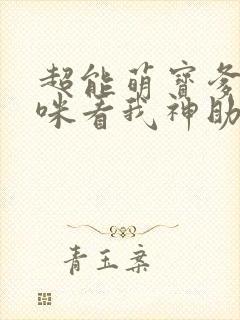 超能萌寶爹
咪看我神助
青玉案